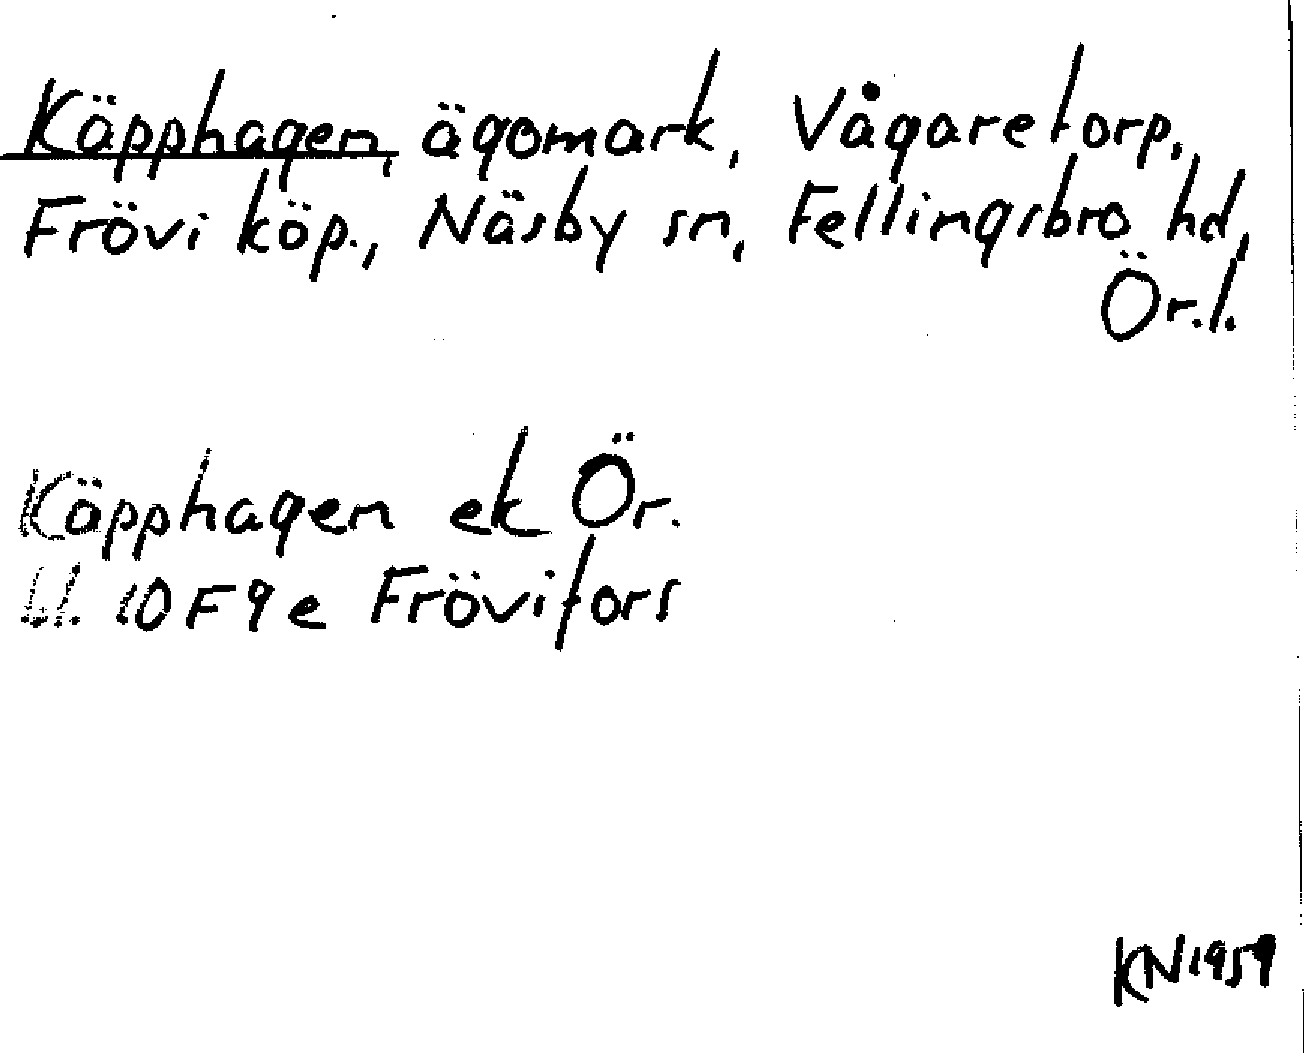 Käpphagen, ägomark, Vågaretorp,
Frövi köp., Näsby sn, Fellingsbro hd,
Ör.l.
Käpphagen ek Ör.
l.l. 10F9e Frövifors
KN 1959